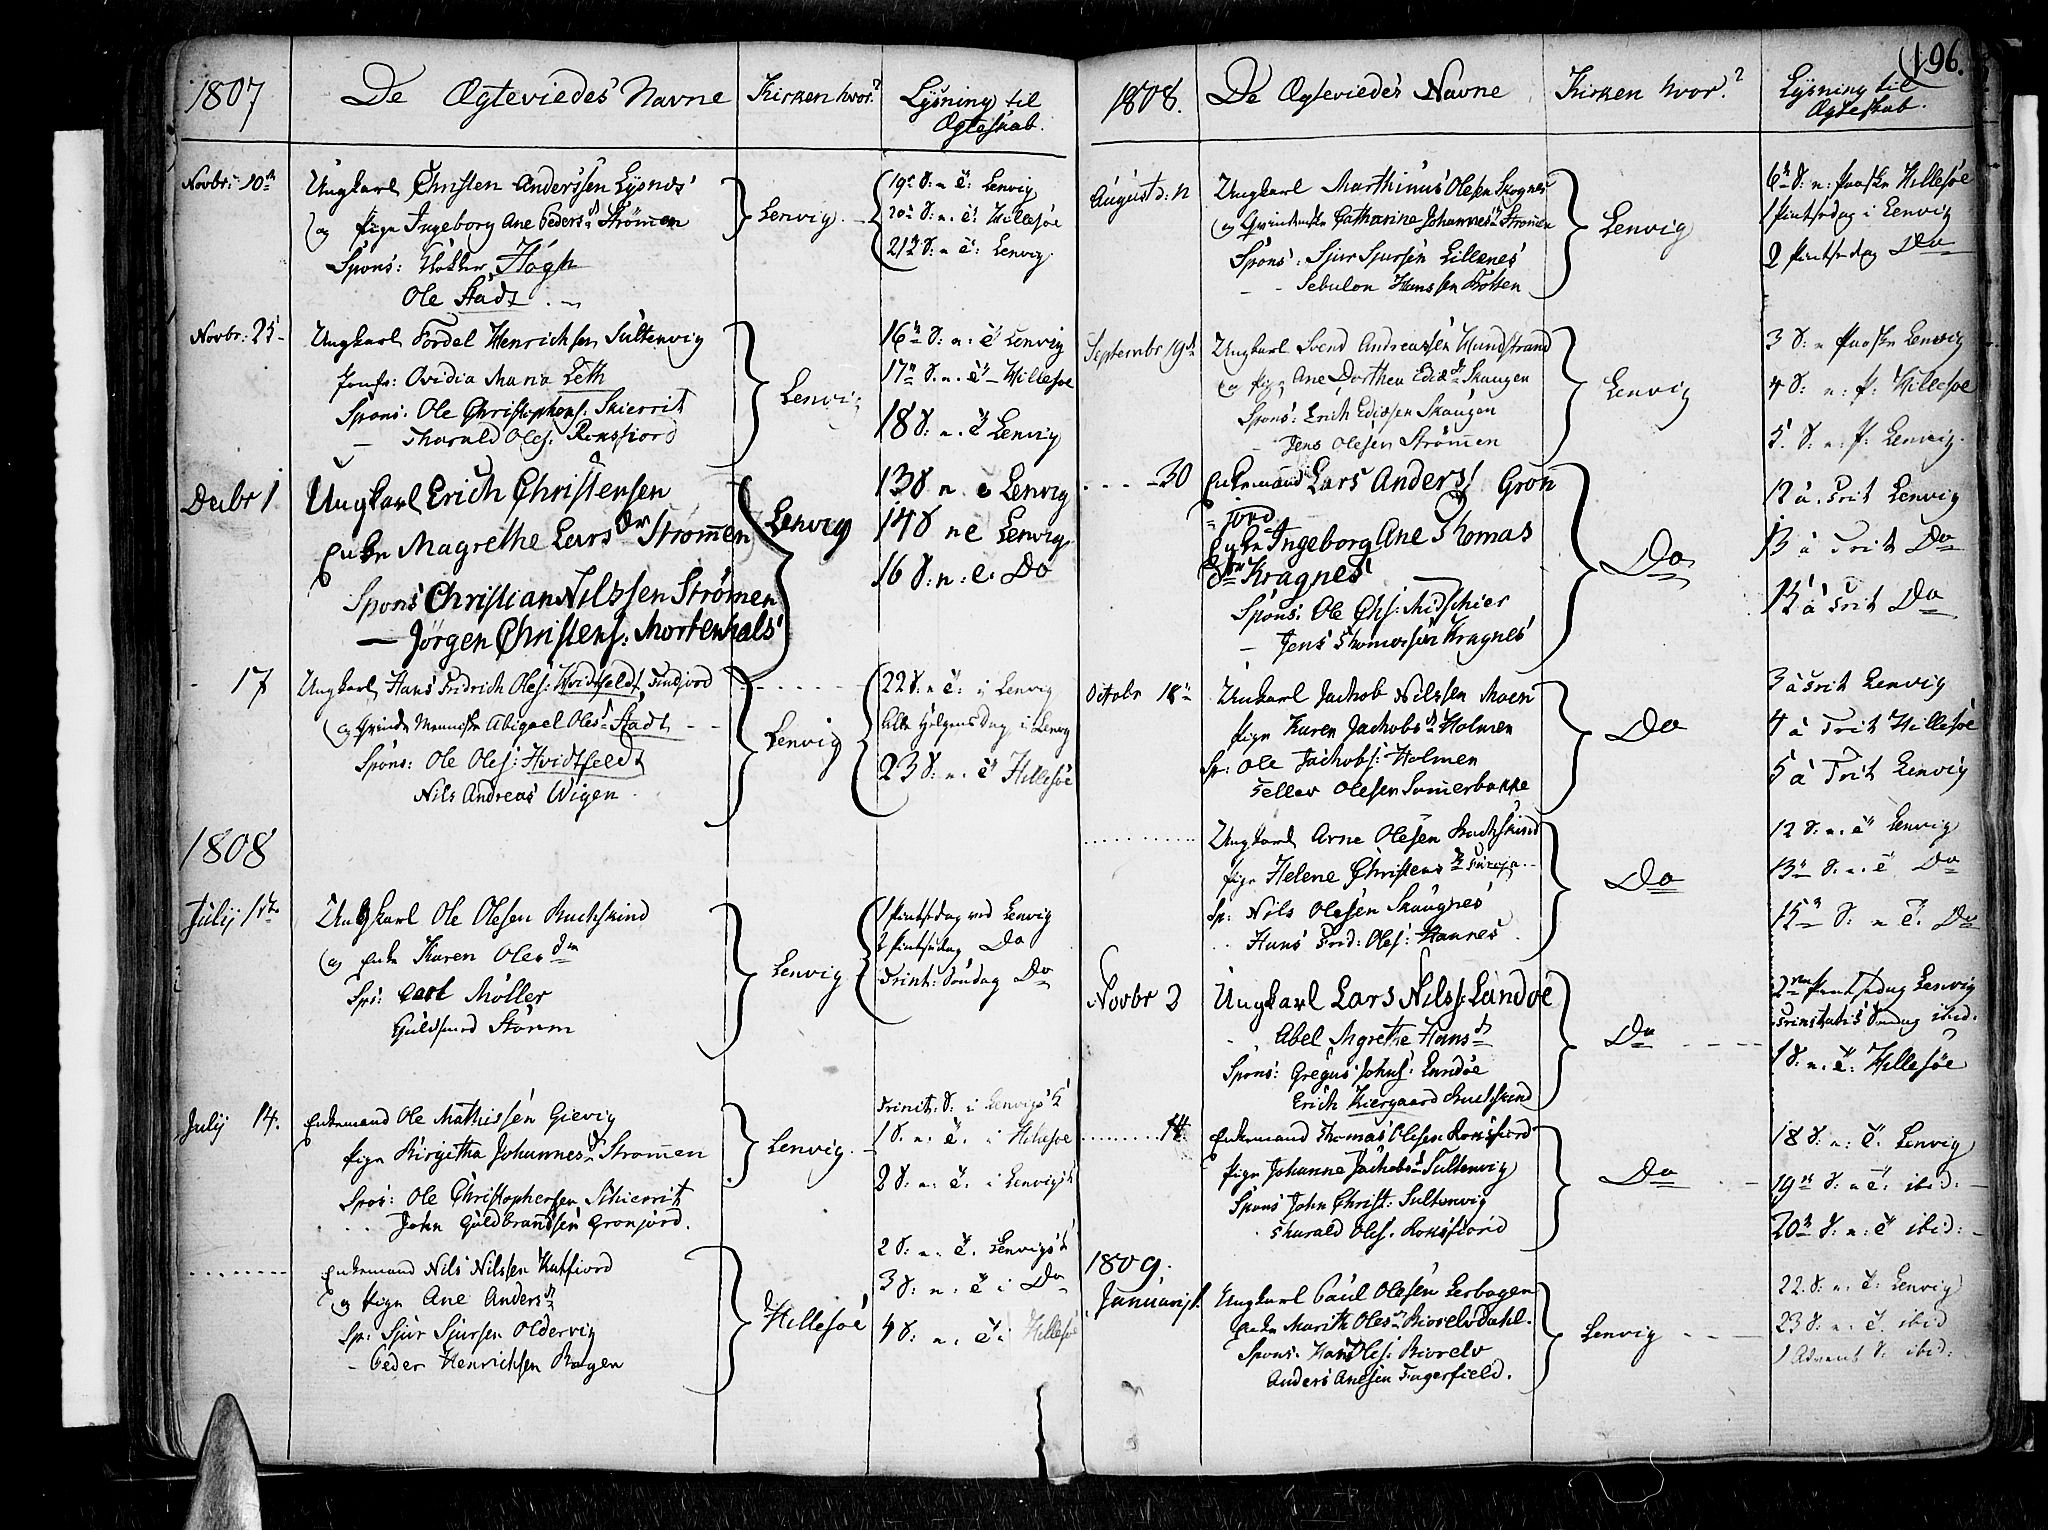 1807
De Ægteviedes Navne
Kirken hvor?
Lysning til
Ægteskab.
Novbr: 10de
Ungkarl Christen Anderssen Lysnes
og Pige Ingeborg Ane Pedersd Strømen
Spons: Høgh
Ole Stadt
Lenvig
19e S: n: T: Lenvig
20n S: n: T: Hillesøe
21n S: n T: Lenvig
Novbr: 25
Ungkarl Tordel Henrichsen Sultenvig
Jomfr: Ovidia Maria Leth
Spons: Ole Christophers: Skierrit
- Tharald Oles: Roksfiord
Lenvig
16n S: n: T Lenvig
17n S. n. T - Hillesøe
18 S: n. T Lenvig
Decbr 1
Ungkarl Erich Christensen
Enke Magrethe Larsdr Strømen
Spons Christian Nilssen Strømen
- Jørgen Christens: Mortenhals
Lenvig
13 S n T Lenvig
14 S n T Lenvig
16 S: n: T: Do
- 17
Ungkarl Hans Fridrich Oles: Hvidtfeldt Finfjord
og Qvinde Menniske Abigael Olesd Stadt
Spons: Ole Oles: Hvidtfeldt
Nils Andreas Wigen
Lenvig
22 S: n T: i Lenvig
Alle Helgens Dag i Lenvig
23 S: n. T Hillesøe
1808
Julij 1ste
Ungkarl Ole Olesen Buchskind
og Enke Karen Olesdr
Sps: Carl Møller
Guldsmed Storm
Lenvig
1 Pintsedag ved Lenvig
2 Pintsedag Do
Trinit: Søndag Do
July 14.
Enkemand Ole Mathissen Gievig
Pige Birgitha Johannesd Strømen
Spos: Ole Christophersen Schierrit
John Guldbrandsen Gronjord.
Lenvig.
Trinit: S: i Lenvigs K
1 S. n: T. i Hillesøe
2 S. n: T. i Lenvigs K
Enkemand Nils Nilssen Katfiord
og Pige Ane Andersd
Sp: Sjur Sjursen Oldervig
- Peder Henrichsen Bagen
Hillesøe
2 S: n. T. Lenvigs K
3 S: n. T i Do
4 S: n. T i Hillesøe
196.
1808.
De Ægteviedes Navne
Kirken hvor?
Lysning til
Ægteskab.
August d: 11
Ungkarl Marthinus Olesen Skognes
og Catharina Johannesd Strømen
Spons: Sjur Sjursen Lillenes
- - Sebulon Hanssen Botten
Lenvig
6te S: n: Paaske Hillesøe
1 Pintsedag i Lenvig
2 Pintsedag Do
Septembr 19de
Ungkarl Svend Andreassen Hundstrand
og Pige Ane Dorthea Edisd Skaugen
Spons: Erich Edissen Skaugen
- Jens Olesen Strømen
Lenvig
3 S: n Paaske Lenvig
4 S: n: P: Hillesøe
5. S: n: P: Lenvig.
. . . -30
Enkemand Lars Anders: Gron
jord
Enke Ingeborg Ane Thomas
dtr Kragnes
Spons: Ole Chs: Midschier
- Jens Thomassen Kragnes
Do
12 a Trit Lenvig
13 a Trit Do
15 a Trit Do
Octobr 18
Ungkarl Jachob Nilssen Moen
Pige Karen Jachobsd Holmen
Sp: Ole Jachobs: Holmen
Tellev Olesen Sømerbakke
Do
3 a Trit Lenvig
4 a Trit Hillesøe
5 a Trit Lenvig
Ungkarl Arne Olesen Buchskind
Pige Helene Christensd
Sp: Nils Olesen Skaugnes
Hans Frid: Oles: Hannes
Do
12 S. n. T Lenvig
13n S. n. T Do
15n S: n T. Do
Novbr 3
Ungkarl Lars Nils: Lundøe
Abel Mgrethe Hansd
Spons: Gregus Johns: Lundøe
Erich Kiergaard Buchskind
Do
2den Pintsedag Lenvig
Trinitatis Søndag ibid.
1 S. n. T: Hillesøe
14
Enkemand Thomas Olesen Roksfiord
Pige Johanne Jachobsd Sultenvig
Spons John Christ: Sultenvig
Tharald Oles. Roksfiord
Do
18 S: n: T. Lenvig
19n S: n T. ibid: -
20n S: n: T ibid: -
1809.
Januarij 1.
Ungkarl Paul Olesen Leebogen
Enke Marith Olesd Biorelvdahl.
Spons. Hans Oles: Biorelv
Anders Anesen Fagerfield.
Lenvig
22. S: n. T: Lenvig
23 S: n. T. ibid
1 Advents S: ibid: